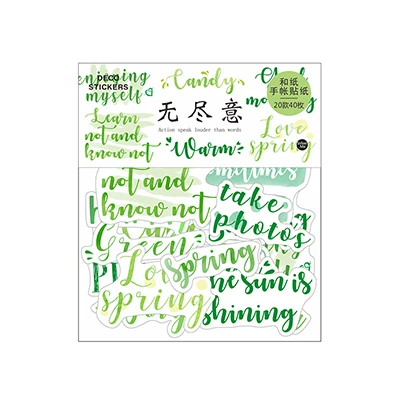 DECO
STICKERS
enjoying
myself
Candy
和纸
手帐贴纸
20款40枚
无尽意
Action speak louder than words
Learn
not and
know not
Warm
Love
spring
sometimes
not and
know not
take
photos
Green
Lo
spring
spring
he sun is
shining